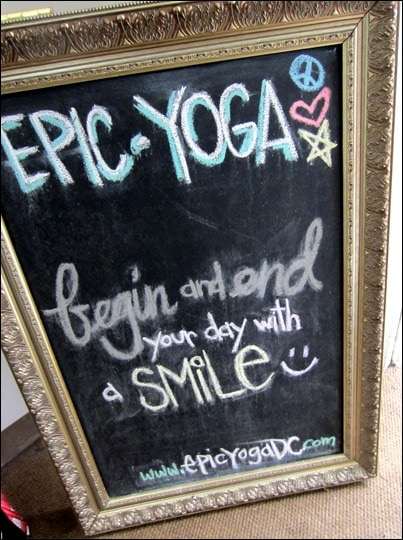 EPIC·YOGA
begin and end
your day with
a SMiLe
www.epicYogaDC.com